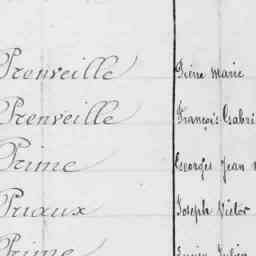 Prenveille Pière Marie
Prenveille François Gabri
Prime Georges Jean
Priaux Joseph Victor
Prime Julien